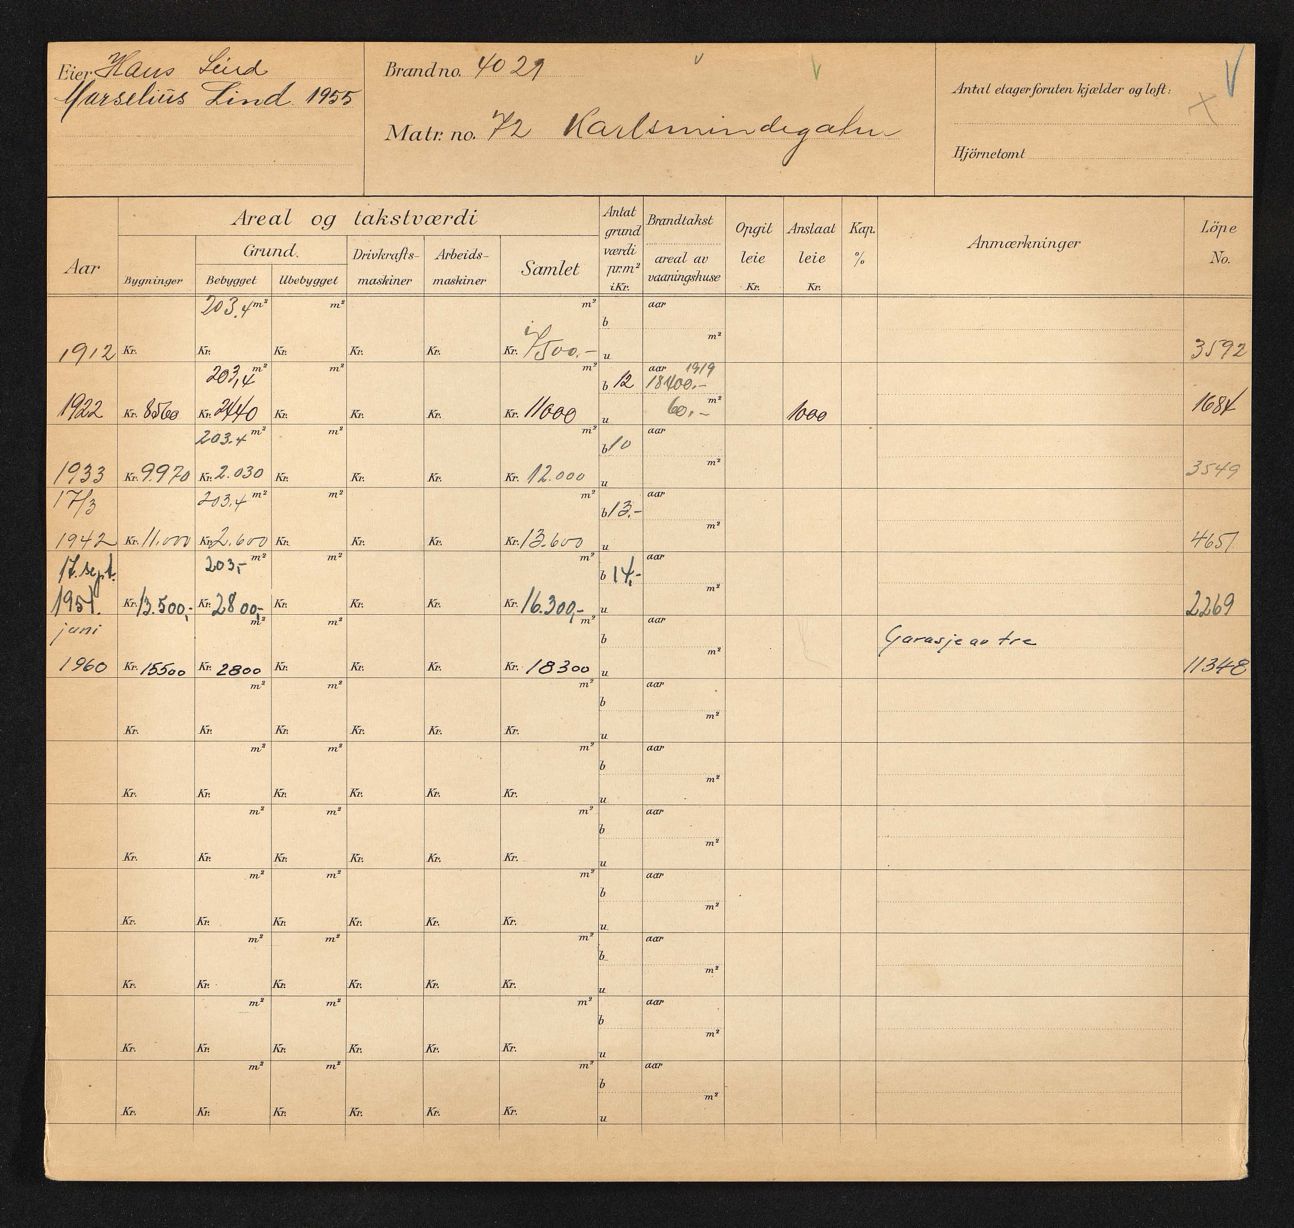 Eier Hans Lind
Marselius Lind 1955
Brand no. 4029
Matr. no. 72 Karlsmindegaten
Antal etager foruten kjælder og loft:
Hjörnetomt
Aar
Areal og takstværdi
Bygninger
Grund.
Bebygget Ubebygget
Drivkrafts-
maskiner
Arbeids-
maskiner
Samlet
Antal
grund
værdi
pr. m²
i Kr.
Brandtakst
areal av
vaaningshuse
Opgit
leie
Kr.
Anslaat
leie
Kr.
Kap.
%
Anmærkninger
Löpe
No.
203.4 m² m² m² b aar
1912 Kr. Kr. Kr. Kr. Kr. Kr. 500.- u m² 3592
203,4 m² m² m² b 12 aar 1919
18400.-
1922 Kr. 8560 Kr. 2440 Kr. Kr. Kr. Kr. 11000 u 60,- m² 1000 1684
203.4 m² m² m² b 10 aar
1933 Kr. 9970 Kr. 2.030 Kr. Kr. Kr. Kr. 12.000 u m² 3549
17/3 203.4 m² m² m² b 13.- aar
1942 Kr. 11.000 Kr. 2.600 Kr. Kr. Kr. Kr. 13.600 u m² 4651
17. sept. 203,- m² m² m² b 14,- aar
1951. Kr. 13.500,- Kr. 2800,- Kr. Kr. Kr. Kr. 16.300,- u m² 2269
juni m² m² m² b aar Garasje av tre
1960 Kr. 15500 Kr. 2800 Kr. Kr. Kr. Kr. 18300 u m² 11348
m² m² m² b aar
Kr. Kr. Kr. Kr. Kr. Kr. u m²
m² m² m² b aar
Kr. Kr. Kr. Kr. Kr. Kr. u m²
m² m² m² b aar
Kr. Kr. Kr. Kr. Kr. Kr. u m²
m² m² m² b aar
Kr. Kr. Kr. Kr. Kr. Kr. u m²
m² m² m² b aar
Kr. Kr. Kr. Kr. Kr. Kr. u m²
m² m² m² b aar
Kr. Kr. Kr. Kr. Kr. Kr. u m²
m² m² m² b aar
Kr. Kr. Kr. Kr. Kr. Kr. u m²